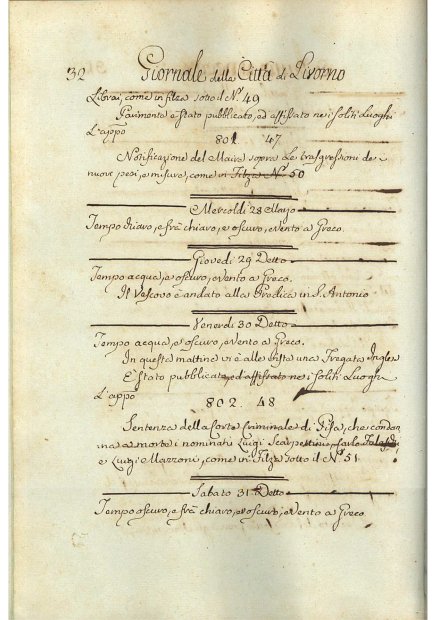 32 Giornale della Città di Livorno
Librai, come in filza sotto il N.º 49
Parimente è stato pubblicato, ed affissato ne i soliti Luoghi
L'appo
801 47
Notificazione del Maire sopra Le trasgressioni de
nuovi pesi, e misure, come in Filza Nº 50
Mercoldì 28 Marzo
Tempo chiaro, e frà chiaro, e oscuro, e vento a Greco.
Giovedi 29 Detto
Tempo acqua, e oscuro, e vento a Greco.
Il Vescovo è andato alla Predica in S. Antonio
Venerdi 30 Detto
Tempo acqua, e oscuro, e vento a Greco.
In questa mattina vi è alle vista una Fregata Inglese
E' stato pubblicato, ed affissato ne i soliti Luoghi
L'appo
802. 48
Sentenza della Corte Criminale di Pisa, che condan
na a morte i nominati Luigi Scarpettini, Carlo
e Luigi Mazzoni, come in Filza sotto il Nº 51
Sabato 31 Detto
Tempo oscuro, e frà chiaro, e oscuro, e vento a Greco